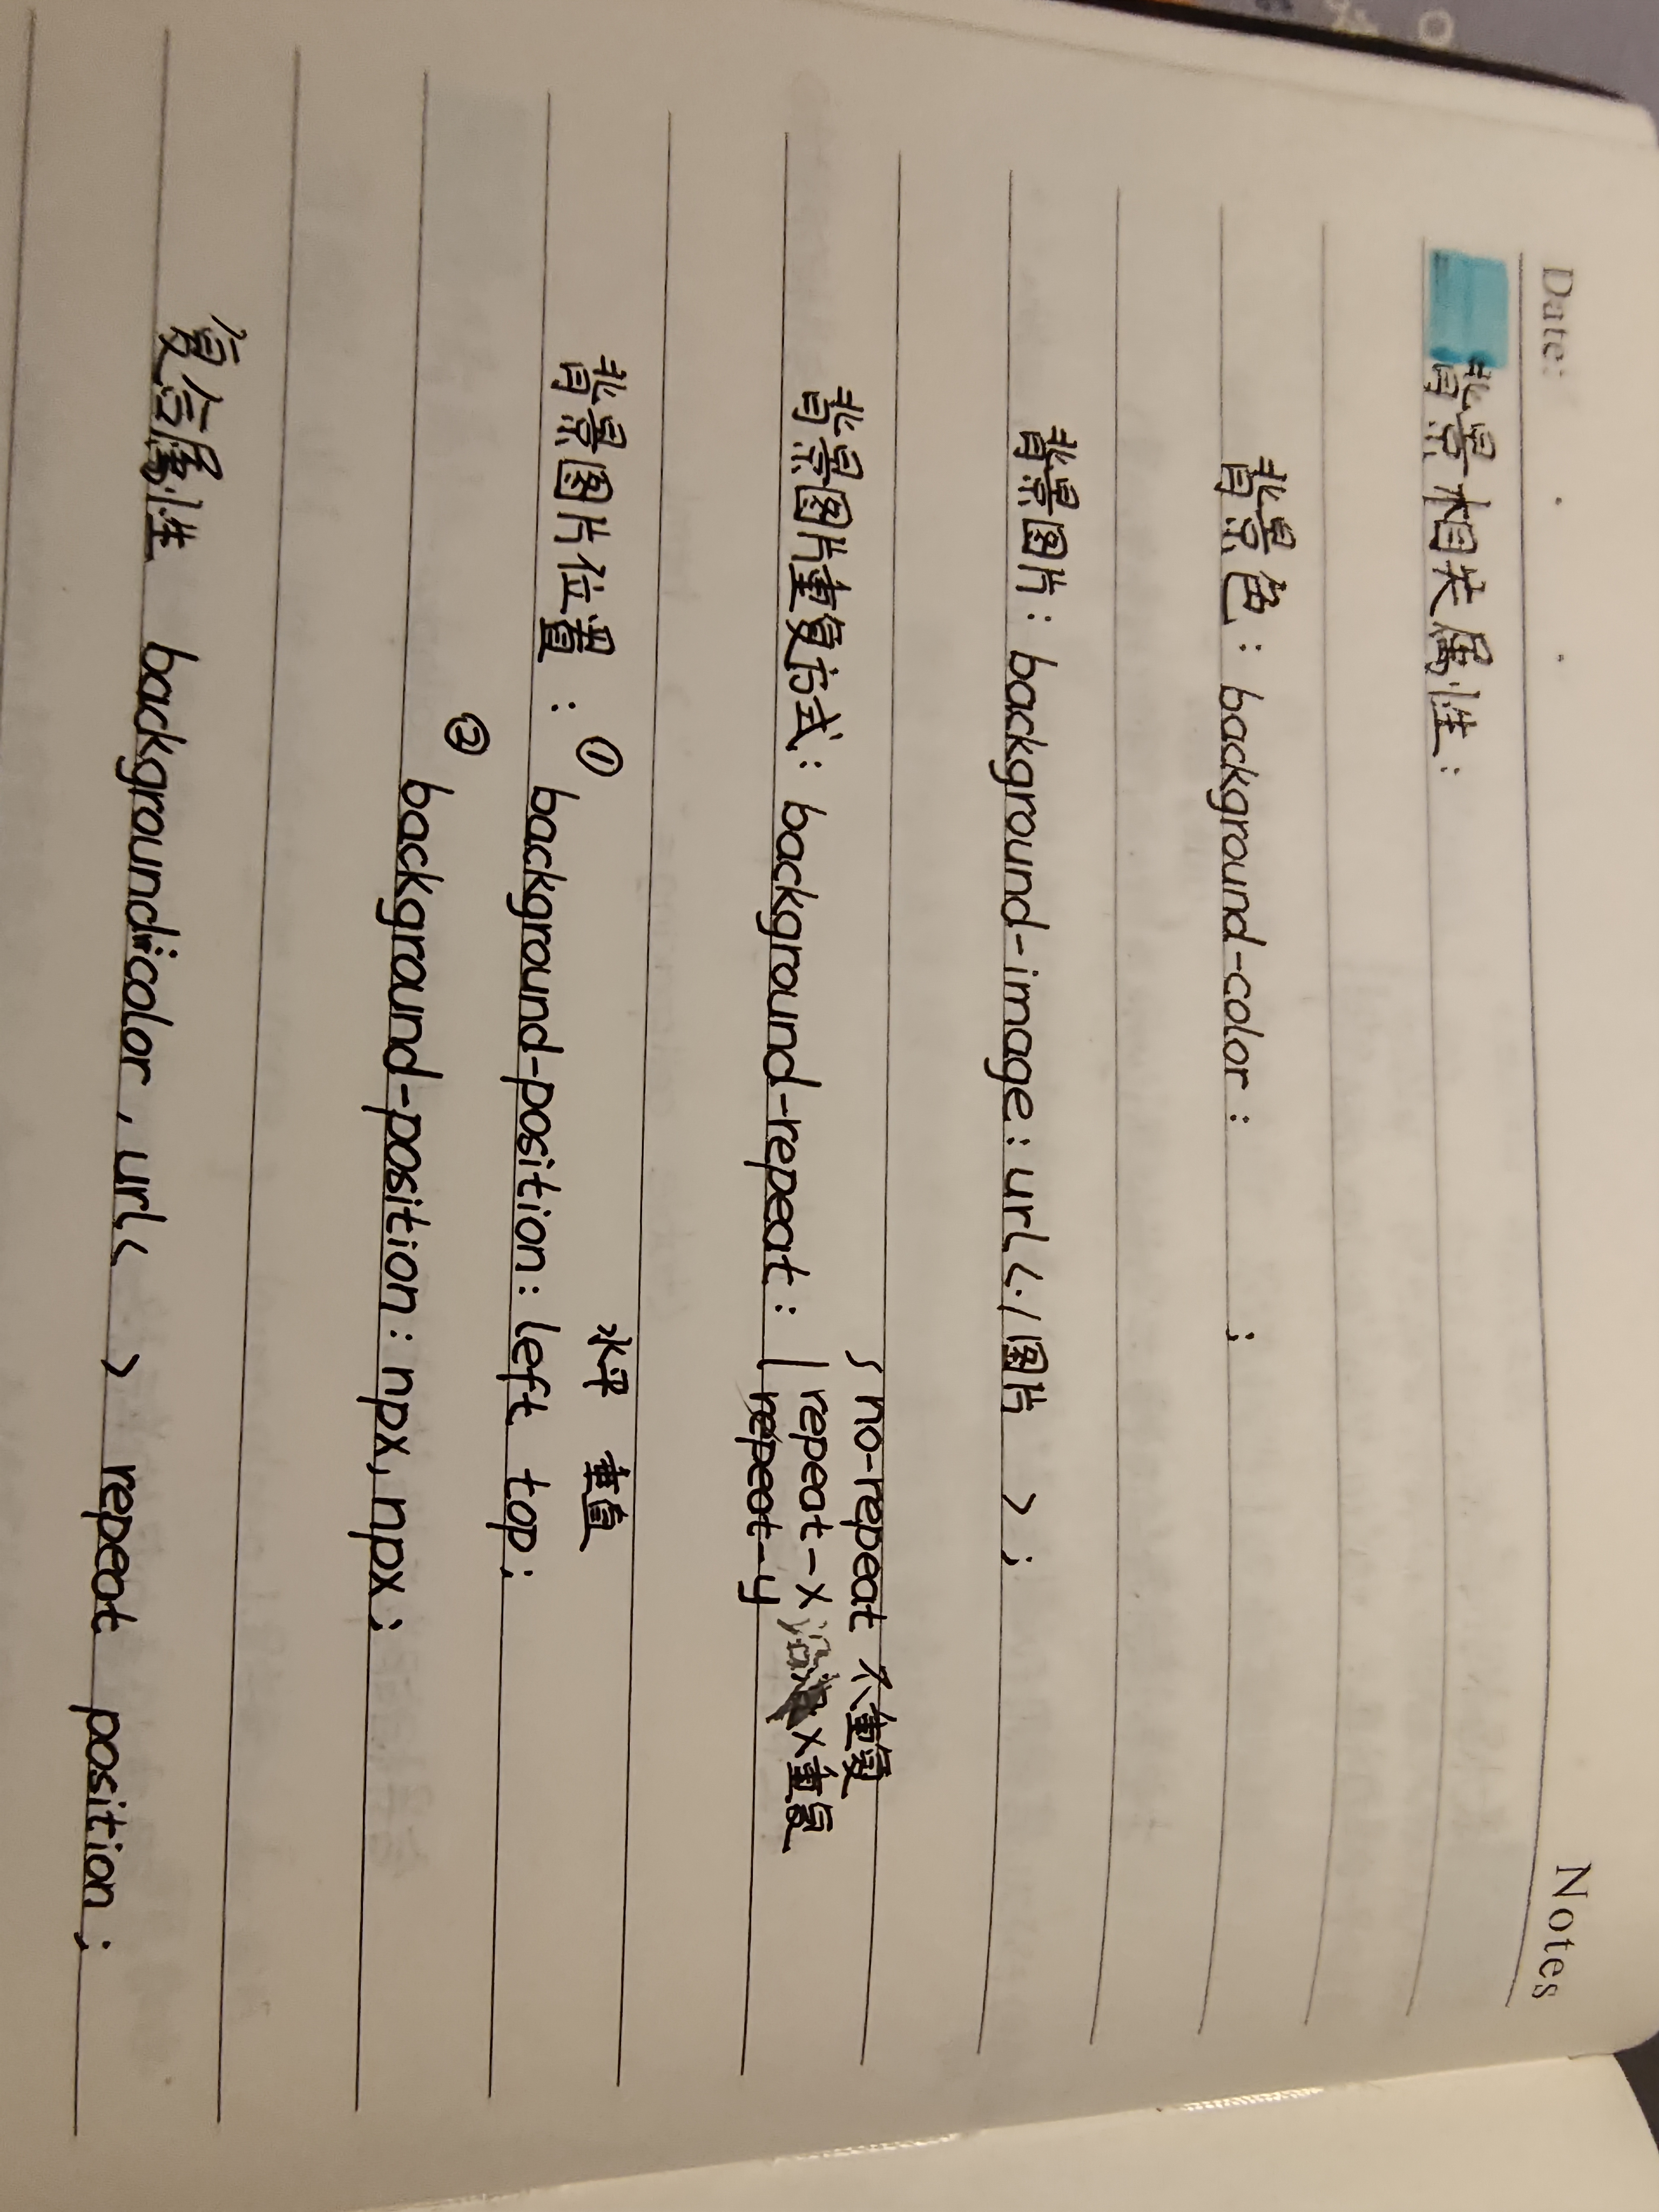 Date:
Notes
背景相关属性:
背景色: background-color: ;
背景图片: background-image: url<./图片 >;
no-repeat 不重复
背景图片重复方式: background-repeat: repeat-x 沿 x重复
repeat-y
水平 垂直
背景图片位置: ① background-position: left top;
② background-position: npx, npx;
复合属性 background:color, url< > repeat position;